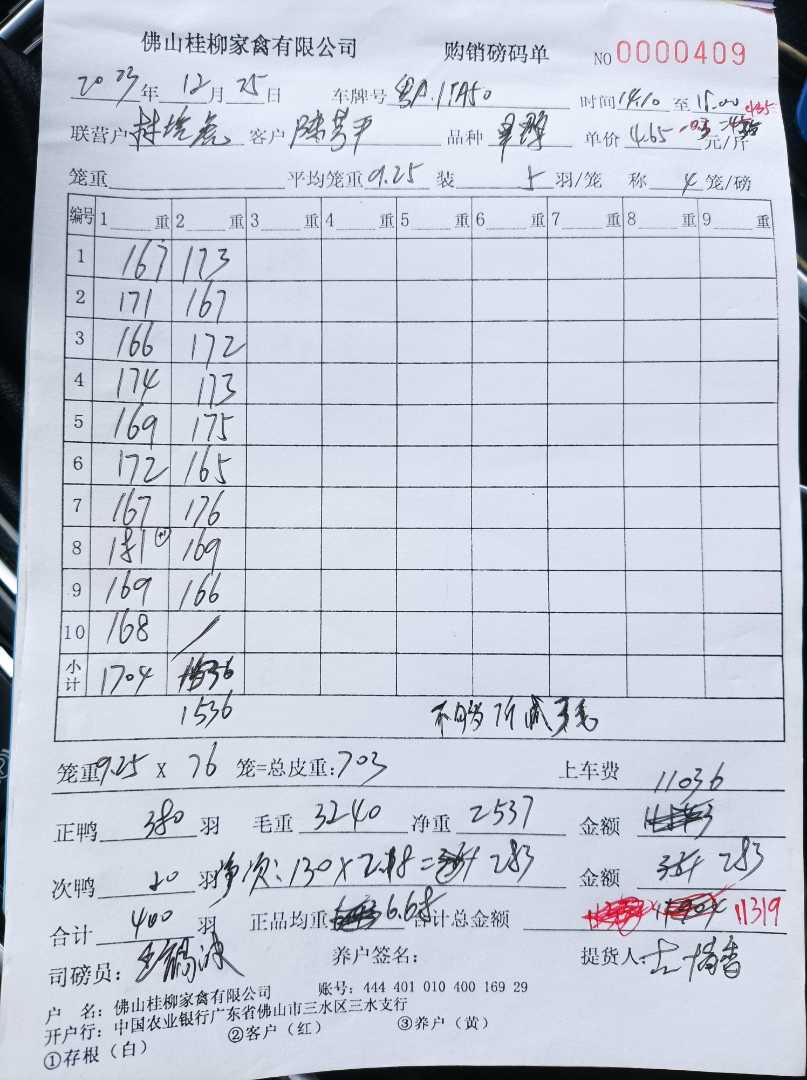 佛山桂柳家禽有限公司 购销磅码单 NO 0000409
2023年 12月 25日 车牌号 时间 14.10 至 15.00
联营户 客户 品种 单价 4.65 元/斤
笼重 平均笼重 9.25 装 5 羽/笼 称 4 笼/磅
编号 1 重 2 重 3 重 4 重 5 重 6 重 7 重 8 重 9 重
1 167 173
2 171 167
3 166 172
4 174 173
5 169 175
6 172 165
7 167 176
8 181 169
9 169 166
10 168 /
小计 1704 1536
1536
笼重 9.25 X 76 笼=总皮重: 703 上车费
11036
正鸭 380 羽 毛重 3240 净重 2537 金额
次鸭 20 羽 净次: 130 x 2.18 = 283 金额 283
合计 400 羽 正品均重 6.68 合计总金额 11319
司磅员: 养户签名: 提货人
户 名: 佛山桂柳家禽有限公司 账号: 444 401 010 400 169 29
开户行: 中国农业银行广东省佛山市三水区三水支行
①存根（白） ②客户（红） ③养户（黄）